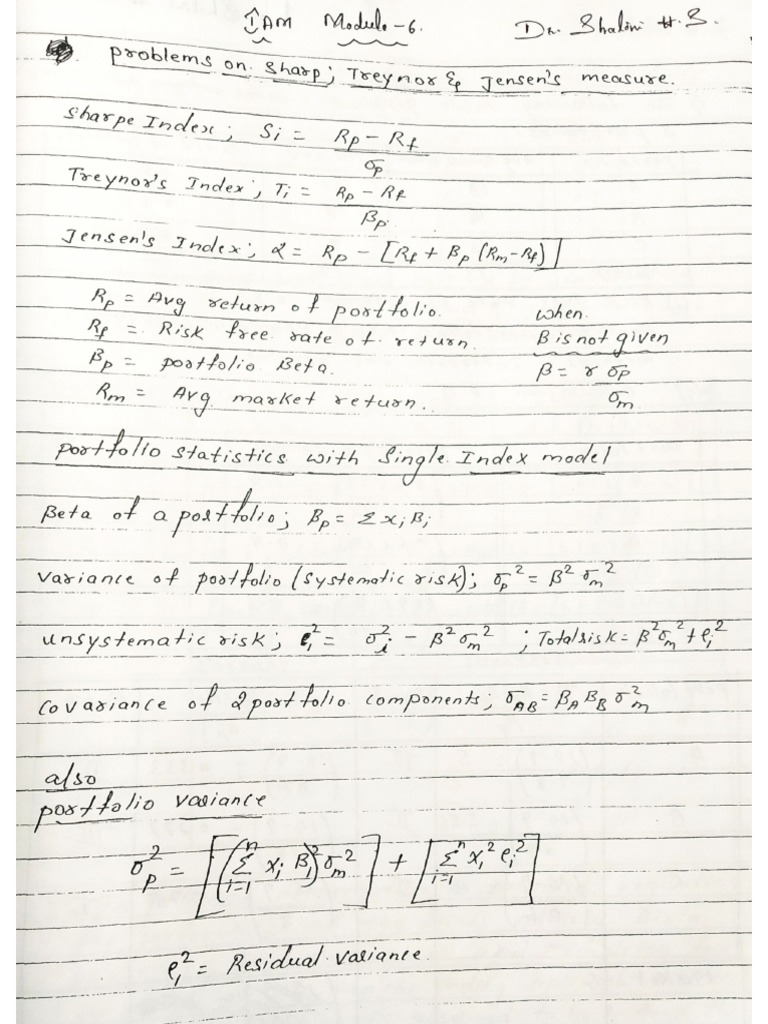 IAM Module-6. Dr. Shalini H.S.
problems on sharp; Treynor & Jensen's measure.
Sharpe Index; Si = Rp - Rf / σp
Treynor's Index; Ti = Rp - Rf / βp
Jensen's Index; α = Rp - [Rf + Bp (Rm - Rf)]
Rp = Avg return of portfolio. when
Rf = Risk free rate of return. B is not given
Bp = portfolio Beta. β = r σp / σm
Rm = Avg market return.
portfolio statistics with Single Index model
Beta of a portfolio; Bp = Σ xi Bi
variance of portfolio (systematic risk); σp² = β² σm²
unsystematic risk; ei² = σi² - β² σm² ; Total risk = β² σm² + ei²
covariance of 2 portfolio components; σAB = βA BB σ²m
also
portfolio variance
σp² = [(Σ i=1 n xi Bi)² σm²] + [Σ i=1 n xi² ei²]
ei² = Residual variance.